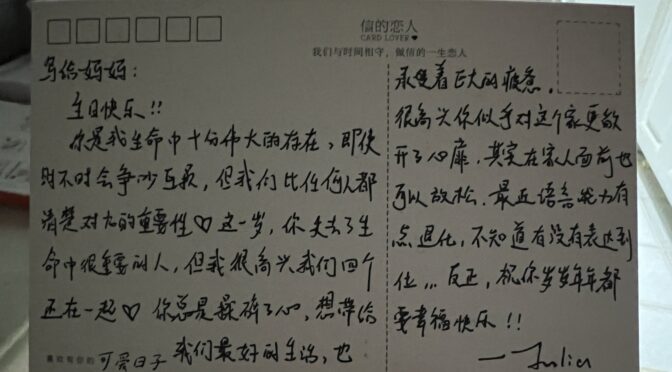 信的恋人
CARD LOVER
我们与时间相守，做信的一生恋人
写给妈妈：
生日快乐！！
你是我生命中十分伟大的存在，即使
时不时会争吵互怼，但我们比任何人都
清楚对方的重要性♡ 这一岁，你失去了生
命中很重要的人，但我很高兴我们四个
还在一起♡ 你总是操碎了心，想带给
我们最好的生活，也
喜欢有你的 可爱日子
承受着巨大的疲惫，
很高兴你似乎对这个家更敞
开了心扉，其实在家人面前也
可以放松。最近语言能力有
点退化，不知道有没有表达到
位... 反正，祝你岁岁年年都
要幸福快乐！！
— Julia